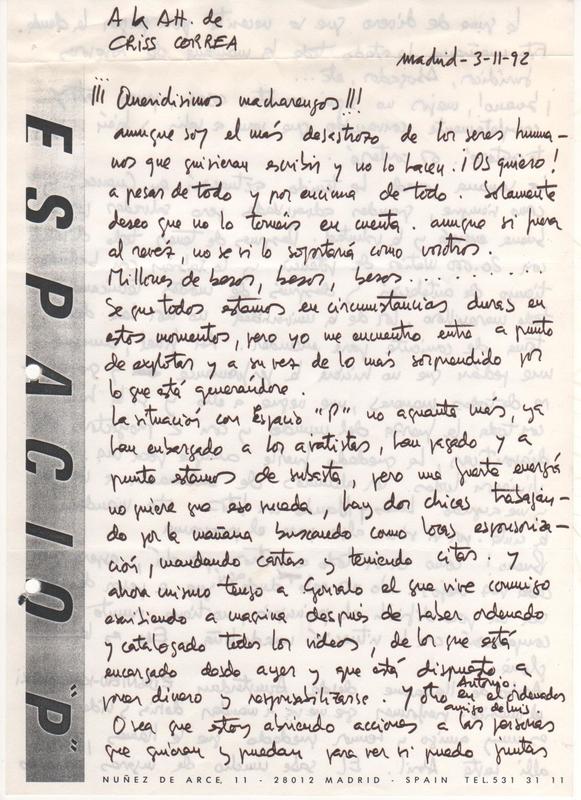 A la Att. de
CRISS CORREA
madrid - 3-11-92
¡¡¡ Queridisimos macharengos !!!
aunque soy el más desastrozo de los seres huma-
nos que quisieran escribir y no lo hacen. ¡Os quiero!
a pesar de todo y por encima de todo. Solamente
deseo que no lo tomeis en cuenta. aunque si fuera
al revez, no se si lo soportaria como vosotros.
Millones de besos, besos, besos. . . . . . .
Se que todos estamos en circumstancias duras en
estos momentos, pero yo me encuentro entre a punto
de explotar y a su vez de lo más sorprendido por
lo que está generandose.
La situación con Espacio "P" no aguanta más, ya
han embargado a los avalistas, han pagado y a
punto estamos de subasta, pero una fuerte energia
no quiere que eso suceda, hay dos chicas trabajan-
do por la mañana buscando como locas esponsoriza-
ción, mandando cartas y teniendo citas. Y
ahora mismo tengo a Gonzalo el que vive conmigo
escribiendo a maquina después de haber ordenado
y catalogado todos los videos, de lo que está
encargado desde ayer y que está dispuesto a
poner dinero y responsibilizarse. . . Y otro Antonio. en el ordenador
amigo de luis.
O sea que estoy abriendo acciones a las personas
que quieran y puedan para ver si puedo juntas
ESPACIO "P"
NUÑEZ DE ARCE, 11 - 28012 MADRID - SPAIN TEL.531 31 11